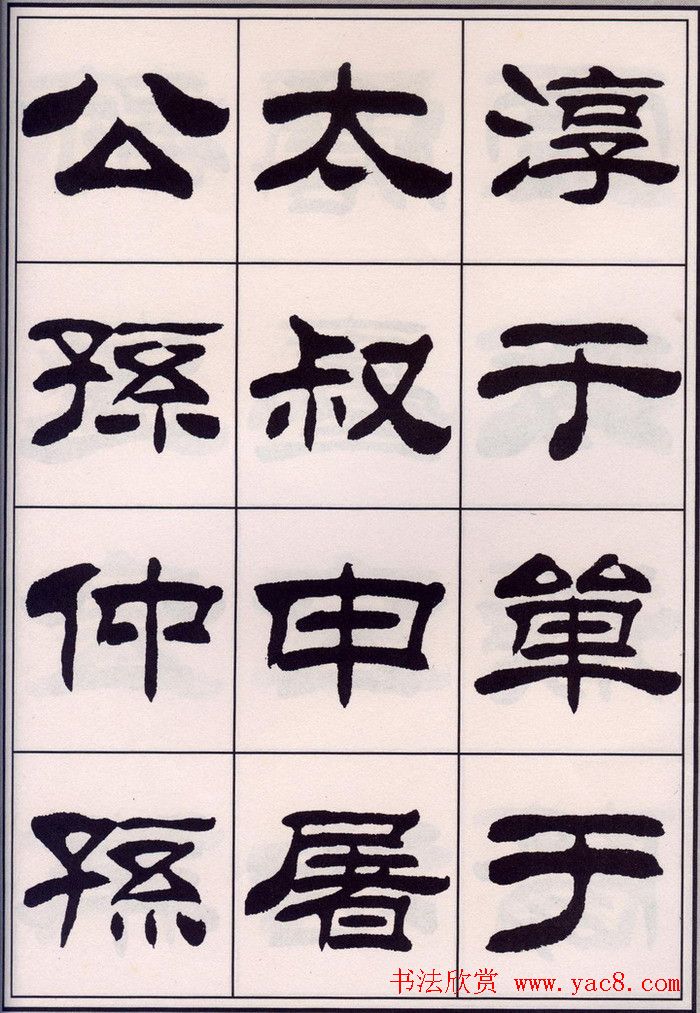 淳于單于
太叔申屠
公孫仲孫
书法欣赏 www.yac8.com